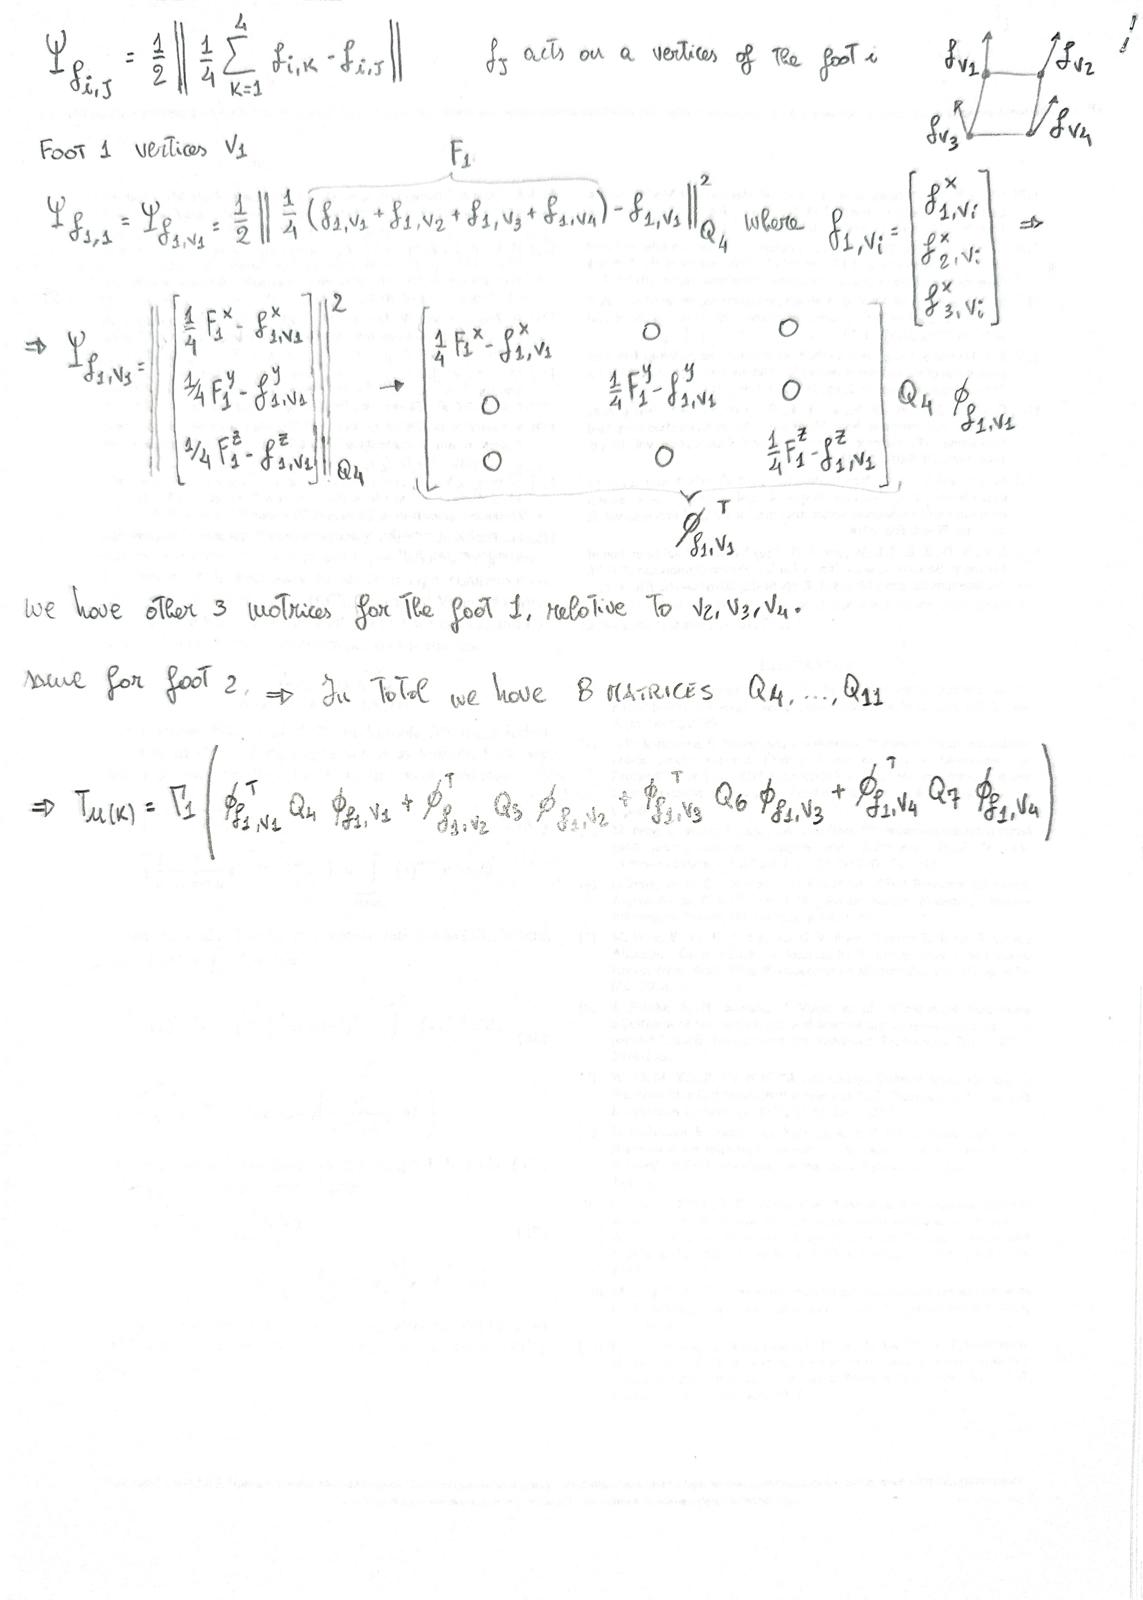 Ψ_{f_{i,J}} = 1/2 || 1/4 Σ_{K=1}^{4} f_{i,K} - f_{i,J} || f_J acts on a vertices of the foot i
f_{V1} f_{V2}
f_{V3} f_{V4}
Foot 1 vertices V1
F_1
Ψ_{f_{1,1}} = Ψ_{f_{1,V1}} = 1/2 || 1/4 (f_{1,V1} + f_{1,V2} + f_{1,V3} + f_{1,V4}) - f_{1,V1} ||^2_{Q_4} where f_{1,Vi} = [f^x_{1,Vi} ; f^x_{2,Vi} ; f^x_{3,Vi}] ⇒
⇒ Ψ_{f_{1,V1}} = || [1/4 F_1^x - f^x_{1,V1} ; 1/4 F_1^y - f^y_{1,V1} ; 1/4 F_1^z - f^z_{1,V1}] ||^2_{Q_4} → [1/4 F_1^x - f^x_{1,V1} 0 0 ; 0 1/4 F_1^y - f^y_{1,V1} 0 ; 0 0 1/4 F_1^z - f^z_{1,V1}] Q_4 ϕ_{f_{1,V1}}
ϕ^T_{f_{1,V1}}
we have other 3 matrices for the foot 1, relative to V2, V3, V4.
same for foot 2, ⇒ In total we have 8 MATRICES Q4, ..., Q11
⇒ T_{u(K)} = Γ_1 ( ϕ^T_{f_{1,V1}} Q_4 ϕ_{f_{1,V1}} + ϕ^T_{f_{1,V2}} Q_5 ϕ_{f_{1,V2}} + ϕ^T_{f_{1,V3}} Q_6 ϕ_{f_{1,V3}} + ϕ^T_{f_{1,V4}} Q_7 ϕ_{f_{1,V4}} )